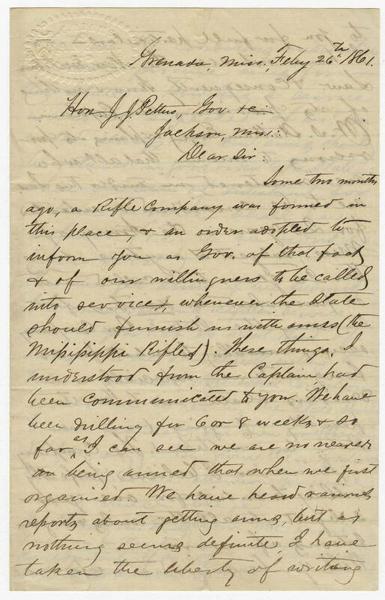 Grenada, Miss, Feby 26th 1861.
Hon. J. J. Pettus, Gov. &c
Jackson, Miss:
Dear Sir:
Some two months
ago, a Rifle Company was formed in
this place, & an order adopted to
inform you as Gov. of that fact,
& of our willingness to be called
into service, whenever the State
should furnish us with arms (the
Mississippi Rifles). These things, I
understood from the Captain had
been communicated to you. We have
been drilling for 6 or 8 weeks & so
far as I can see we are no nearer
being armed that when we first
organised. We have heard various
reports about getting arms, but as
nothing seems definite, I have
taken the liberty of writing